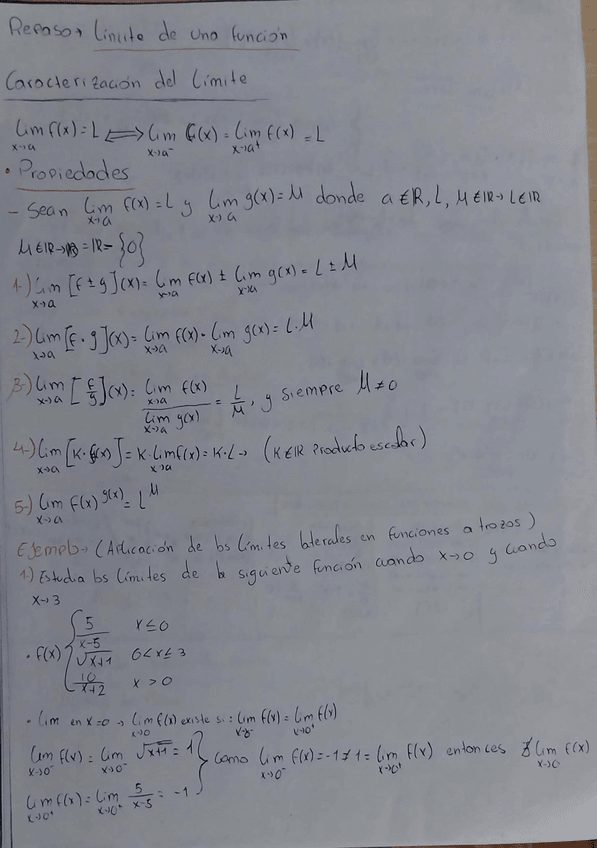 Repaso → Límite de una función
Caracterización del Límite
lim x→a f(x) = L ⟺ lim x→a⁻ f(x) = lim x→a⁺ f(x) = L
• Propiedades
- Sean lim x→a f(x) = L y lim x→a g(x) = M donde a ∈ ℝ, L, M ∈ ℝ → L ∈ ℝ
M ∈ ℝ → ℝ = ℝ - {0}
1-) lim x→a [f ± g](x) = lim x→a f(x) ± lim x→a g(x) = L ± M
2-) lim x→a [f · g](x) = lim x→a f(x) · lim x→a g(x) = L · M
3-) lim x→a [f/g](x) = lim x→a f(x) / lim x→a g(x) = L/M, y siempre M ≠ 0
4-) lim x→a [K · f(x)] = K · lim x→a f(x) = K · L → (K ∈ ℝ Producto escalar)
5-) lim x→a f(x)^g(x) = L^M
Ejemplo → (Aplicación de los límites laterales en funciones a trozos)
1.) Estudia los límites de la siguiente función cuando x→0 y cuando
x→3
5/(x-5) x ≤ 0
• f(x) { √(x+1) 0 < x ≤ 3
10/(x+2) x > 0
• lim en x=0 → lim x→0 f(x) existe si: lim x→0⁻ f(x) = lim x→0⁺ f(x)
lim x→0⁻ f(x) = lim x→0⁻ √(x+1) = 1 } Como lim x→0⁻ f(x) = -1 ≠ 1 = lim x→0⁺ f(x) entonces ∄ lim x→0 f(x)
lim x→0⁺ f(x) = lim x→0⁺ 5/(x-5) = -1